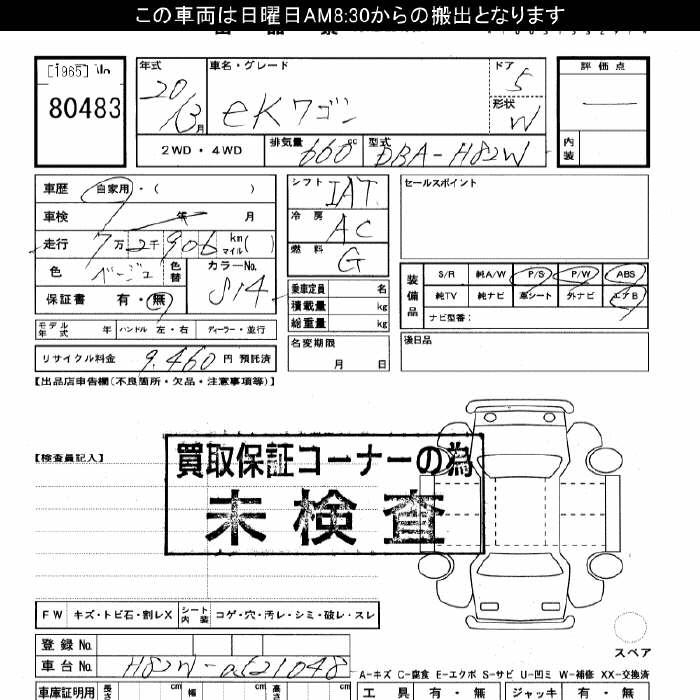 この車両は日曜日AM8:30からの搬出となります
[1965] No
80483
年式 車名・グレード ドア 評価点
20/3月 eKワゴン 5
形状 W
2WD・4WD 排気量 660cc 型式 DBA-H82W 内装
車歴 自家用・( ) シフト IAT セールスポイント
車検 年 月 冷房 AC
走行 7万2千906 km マイル( ) 燃料 G
色 ベージュ 色替 カラーNo. S14
保証書 有・無
乗車定員 名
積載量 kg
総重量 kg
装備品 S/R 純A/W P/S P/W ABS
純TV 純ナビ 革シート 外ナビ エアB
ナビ型番:
モデル年式 年 ハンドル 左・右 ディーラー・並行
名変期限 月 日 後日品
リサイクル料金 9,460 円 預託済
【出品店申告欄(不良箇所・欠品・注意事項等)】
【検査員記入】
買取保証コーナーの為
未検査
FW キズ・トビ石・割レX シート内装 コゲ・穴・汚レ・シミ・破レ・スレ
登録No.
スペア
車台No. H82W-
A-キズ C-腐食 E-エクボ S-サビ U-凹ミ W-補修 XX-交換済
車庫証明用 長さ cm 幅 cm 高さ cm 工具 有・無 ジャッキ 有・無